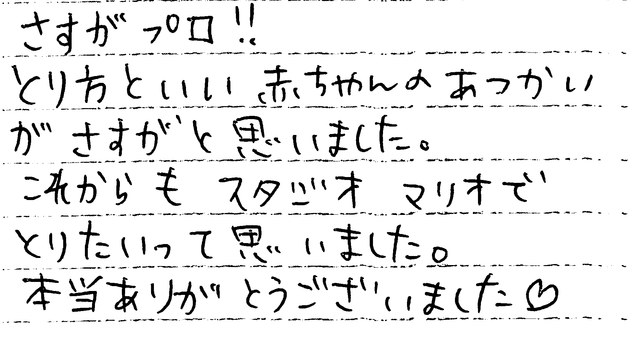 さすがプロ!!
とり方といい赤ちゃんのあつかい
がさすがと思いました。
これからもスタジオマリオで
とりたいって思いました。
本当ありがとうございました♡